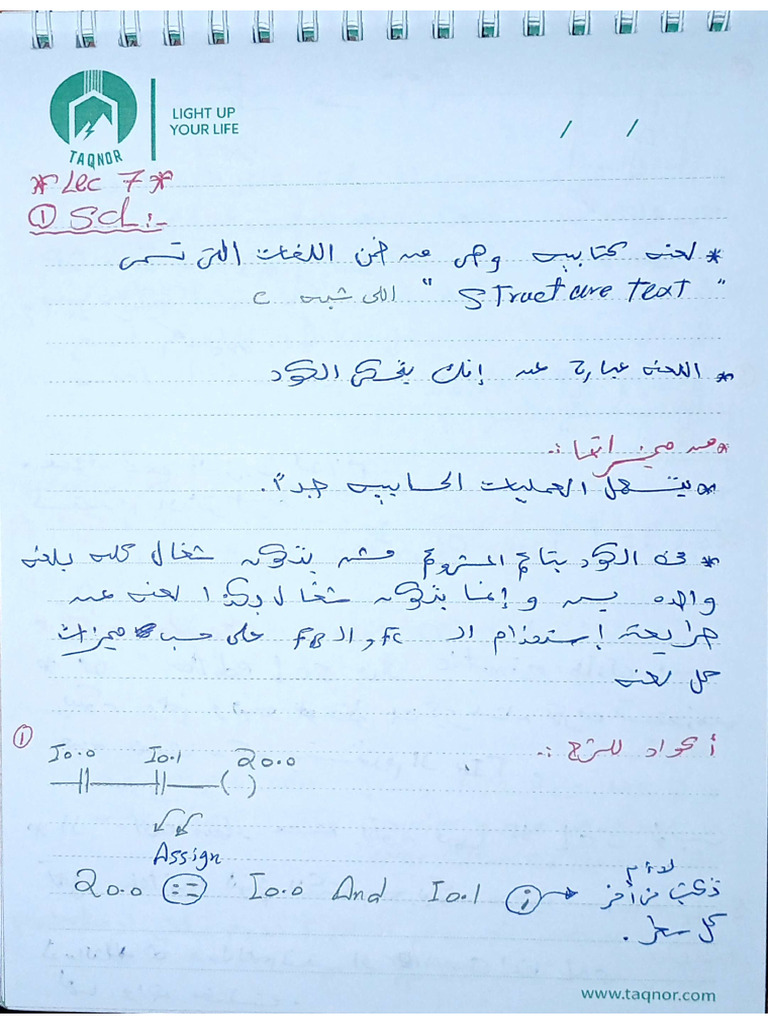 LIGHT UP
YOUR LIFE
TAQNOR
/ /
* Lec 7 *
① Scl :-
* لغه كتابيه وهى من ضمن اللغات التى تسمى
" STructure Text " اللى شبه C
* اللغه عباره عن إنك بتحكى الكود
* من ميزاتها :-
* بتسهل العمليات الحسابيه جداً.
* فى الكود بتاع المشروع مش بتكون شغال كله بلغه
واحده بس وإنما بتكون شغال بكذا لغه عن
طريقة إستخدام الـ FC والـ FB على حسب ميزات
كل لغه
① أكواد للشرح :-
I0.0 I0.1 Q0.0
Assign
Q0.0 := I0.0 And I0.1 ; → لازم
تكتب فى أخر
كل سطر .
www.taqnor.com